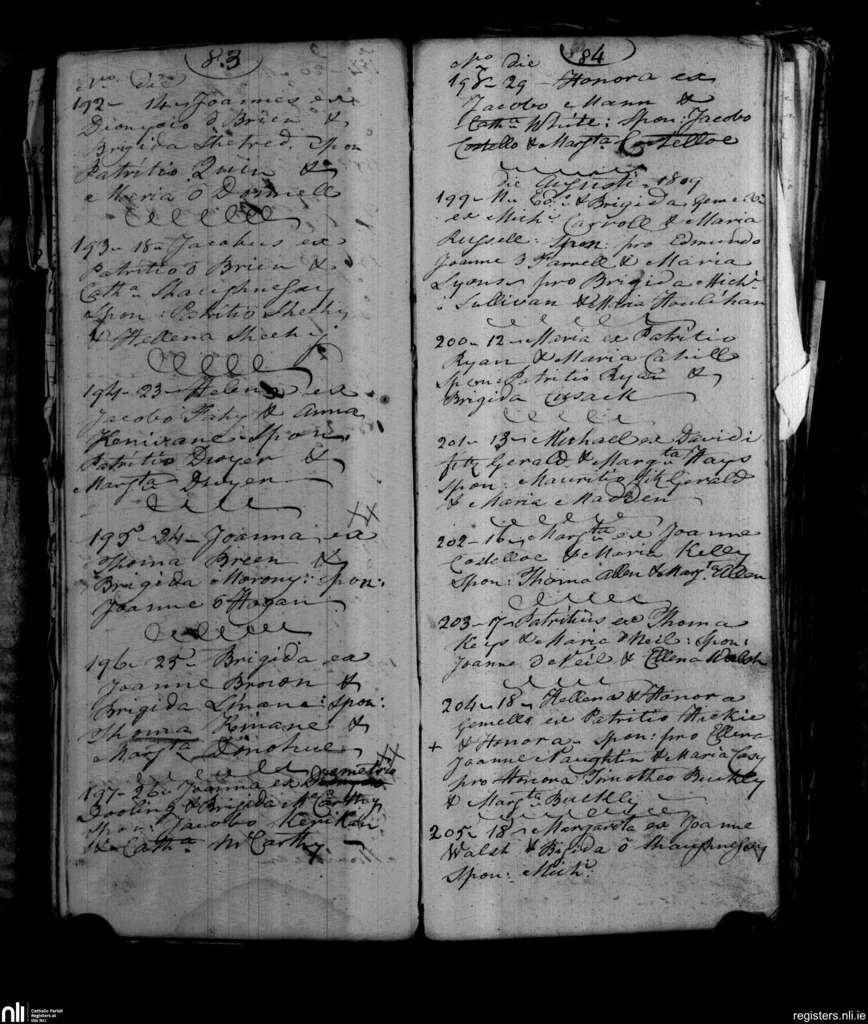 83
No. die
192 - 14 - Joannes ex
Dionysio ō Brien &
Brigida Shelred. Spon
Patritio Quin &
Maria O Donnell
193 - 18 - Jacobus ex
Patritio ō Brien &
Catha Shaughnessy
Spon: Patritio Sheehy
& Hellena Sheehy
194 - 23 - Helena ex
Jacobo Fahy & Anna
Kenivane Spon
Patritio Dwyer &
Margta Dwyer
195 - 24 - Joanna ex
Thoma Breen &
Brigida Morony: Spon:
Joanne ō Hagan
196 - 25 - Brigida ex
Joanne Brown &
Brigida Linane: Spon:
Thoma Kinane &
Margta Donohue
197 - 26 - Joanna ex Demetrio
Dooling & Brigida McCarthy
Spon: Jacobo Kerikan
& Catha McCarthy
84
No die
198 - 29 - Honora ex
Jacobo Mann &
Catha White: Spon: Jacobo
Costello & Margta Costelloe
die Augusti - 1809
199 - 11 - Edd. & Brigida Gemelli
ex Michl Carroll & Maria
Russell: Spon: pro Edmundo
Joanne ō Farrell & Maria
Lyons pro Brigida Michl
ō Sullivan & Maria Houlihan
200 - 12 - Maria ex Patritio
Ryan & Maria Cahill
Spon: Patritio Ryan &
Brigida Cusack
201 - 13 - Michael ex Davidi
fitz Gerald & Margta Hays
Spon: Mauritio fitz Gerald
& Maria Madden
202 - 16 - Margta ex Joanne
Costelloe & Maria Kelly
Spon: Thoma Allen & Margt Allen
203 - 17 - Patritius ex Thoma
Keys & Maria ō Neil: Spon:
Joanne ō Neil & Ellena Walsh
204 - 18 - Hellena & Honora
Gemells ex Patritio Hickie
+ & Honora - Spon: pro Ellena
Joanne Naughtin & Maria Casy
pro Honora Timotheo Buckley
& Margta Buckley
205 - 18 - Margarita ex Joanne
Walsh & Bigida O Shaughnessy
Spon: Michl
nli
Catholic Parish
Registers at
the NLI
registers.nli.ie